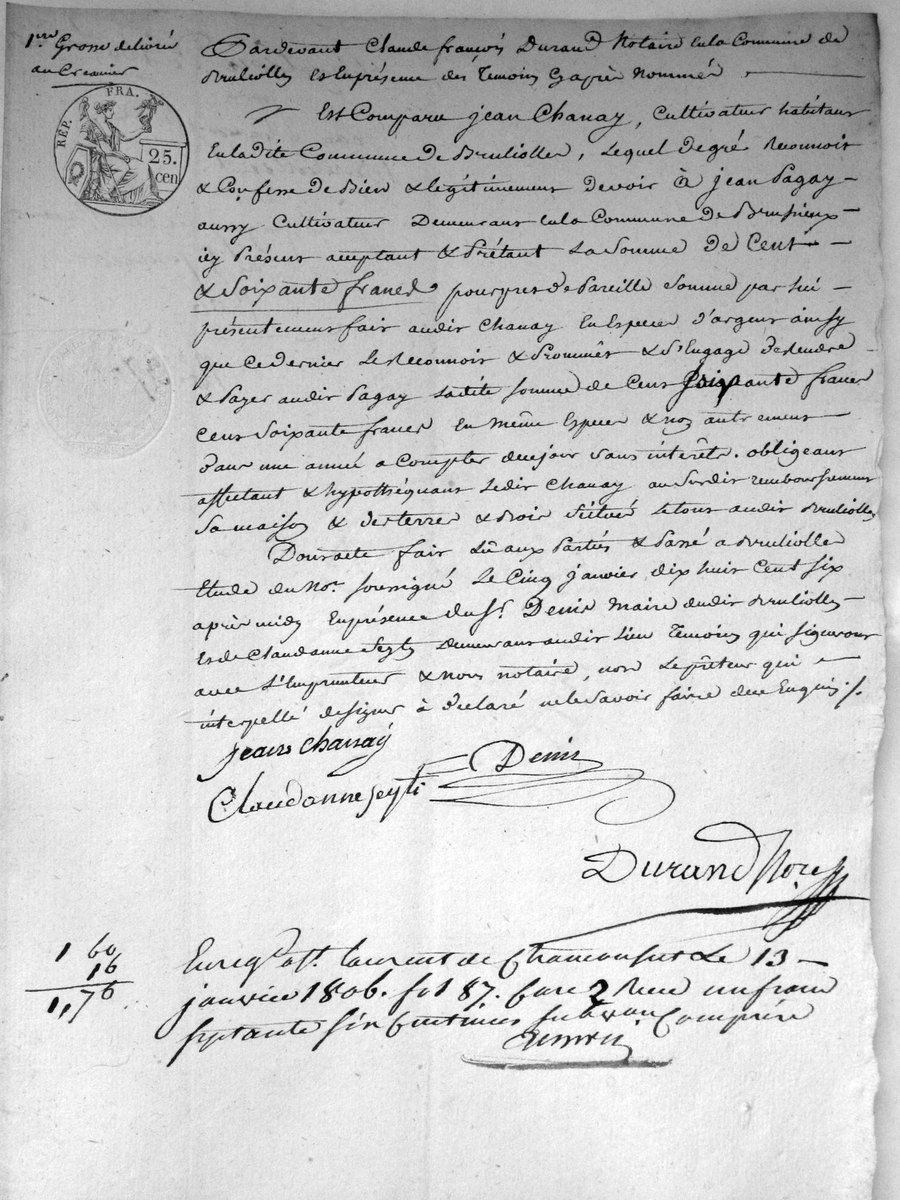 1ere Grosse delivré
au Creancier
RÉP. FRA.
25.
cen
Pardevant Claude françois Durand Notaire en la Commune de
Brulliolles et en présence des Temoins Cy après Nommés
Est Comparu jean Chanay, Cultivateur habitant
En ladite Commune de Brulliolles, Lequel de gré Reconnoit
& Confesse de Bien & legitimement devoir à jean Pagay
aussy Cultivateur Demeurant en la Commune de Brussieux
icy Présent acceptant & Prétant La Somme de Cent
& Soixante francs pour pres de Pareille Somme par lui
présentement fait audit Chanay En Especes d'argent ainsy
que ce dernier Le Reconnoit & Promet & S'Engage de Rendre
& Payer audit Pagay Ladite somme de Cent soixante francs
Cent Soixante francs En même Especes & non autrement
dans une année a Compter de ce jour sans interêts. obligeant
affectant & hypothéquant Ledit Chanay au Susdit remboursement
Sa maison & des terres & Bois Situés Le tout audit Brulliolles
Dont acte fait Lû aux Parties & Passé a Brulliolles
Etude du Nore. soussigné Le Cinq janvier dix huit Cent Six
après midy En présence du Sr. Denis Maire dudit Brulliolles
Et de Claudanne Seyty Demeurant audit Lieu Temoins qui signeront
avec L'Emprunteur & Nous notaire, non Le prêteur qui
interpellé de signer à declaré ne le Savoir faire de ce Enquis ./.
jean Chanay
Denis
Claudanne seyti
Durand Nore
1 60
16
1,76
Enregé. a St. laurent de Chamousset Le 13
janvier 1806. fo 187. Case 2 Recu un franc
septante six Centimes subvon Comprise